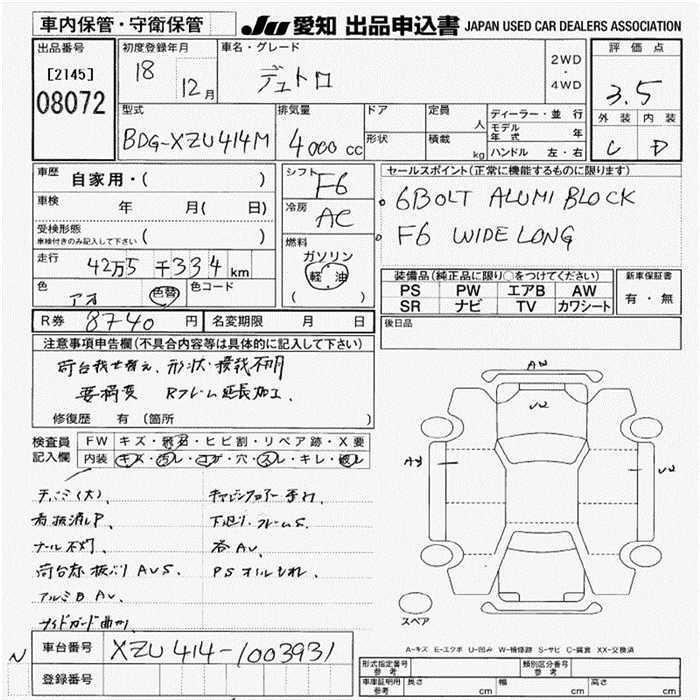 車内保管・守衛保管 JU 愛知 出品申込書 JAPAN USED CAR DEALERS ASSOCIATION
出品番号 初度登録年月 車名・グレード 2WD・4WD 評価点
[2145] 18 12月 デュトロ 3.5
08072 外装 内装
型式 排気量 ドア 定員 人 ディーラー・並行
BDG-XZU414M 4000cc 形状 積載 kg モデル年式 年 C D
ハンドル 左・右
車歴 自家用・( ) シフト F6 セールスポイント(正常に機能するものに限ります)
車検 年 月( 日) 冷房 AC 6BOLT ALUMI BLOCK
受検形態 ( ) F6 WIDE LONG
車検付きのみ記入して下さい
走行 42万5千334km 燃料 ガソリン 軽油 ( )
装備品(純正品に限り○をつけてください) 新車保証書
色 アオ 色替 色コード PS PW エアB AW 有・無
SR ナビ TV カワシート
R券 8740円 名変期限 月 日 後日品
注意事項申告欄(不具合内容等は具体的に記入して下さい)
荷台載せ替え、形状・積載不明
要構変 Rフレーム延長加工、
修復歴 有(箇所 )
検査員記入欄 FW キズ・飛石・ヒビ割・リペア跡・X要
内装 キズ・汚レ・コゲ・穴・スレ・キレ・破レ
AW
U2
AY
U2
下廻り・フレームS、
各AU、
PSオイルもれ、
アルミB AU、
サイドガード曲がり
スペア
A-キズ E-エクボ U-凹み W-補修跡 S-サビ C-腐食 XX-交換済
N 車台番号 XZU414-1003931
登録番号
形式指定番号 参考 類別区分番号 参考
車庫証明用 参考 長さ cm 幅 cm 高さ cm